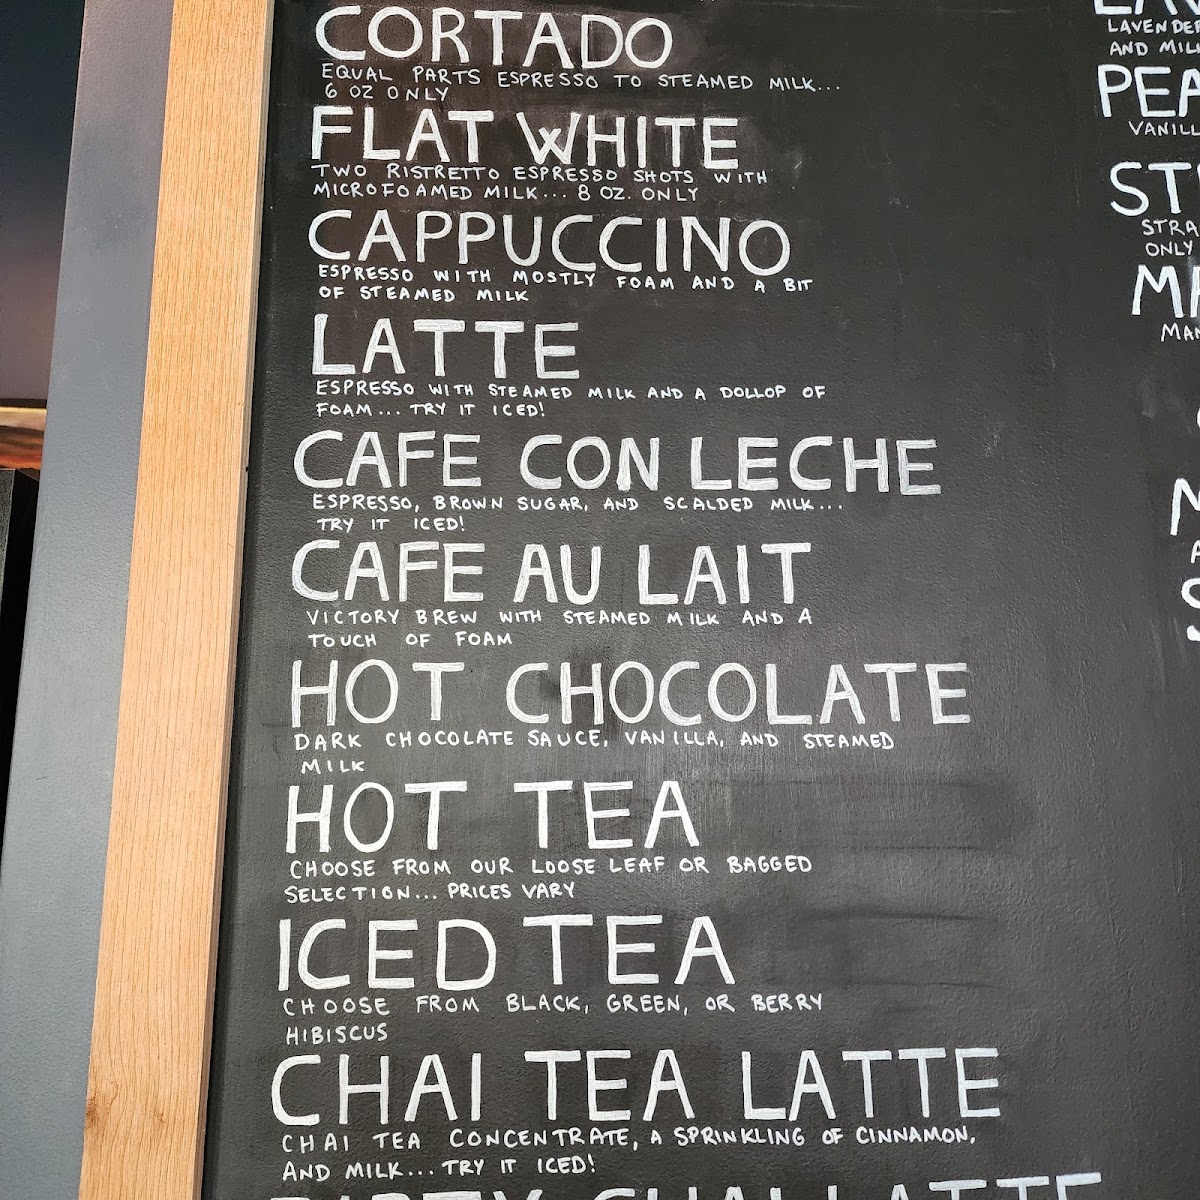 CORTADO
EQUAL PARTS ESPRESSO TO STEAMED MILK...
6 OZ ONLY
FLAT WHITE
TWO RISTRETTO ESPRESSO SHOTS WITH
MICROFOAMED MILK... 8 OZ. ONLY
CAPPUCCINO
ESPRESSO WITH MOSTLY FOAM AND A BIT
OF STEAMED MILK
LATTE
ESPRESSO WITH STEAMED MILK AND A DOLLOP OF
FOAM... TRY IT ICED!
CAFE CON LECHE
ESPRESSO, BROWN SUGAR, AND SCALDED MILK...
TRY IT ICED!
CAFE AU LAIT
VICTORY BREW WITH STEAMED MILK AND A
TOUCH OF FOAM
HOT CHOCOLATE
DARK CHOCOLATE SAUCE, VANILLA, AND STEAMED
MILK
HOT TEA
CHOOSE FROM OUR LOOSE LEAF OR BAGGED
SELECTION... PRICES VARY
ICED TEA
CHOOSE FROM BLACK, GREEN, OR BERRY
HIBISCUS
CHAI TEA LATTE
CHAI TEA CONCENTRATE, A SPRINKLING OF CINNAMON,
AND MILK... TRY IT ICED!
CHAI LATTE
LAVENDER
AND
ONLY